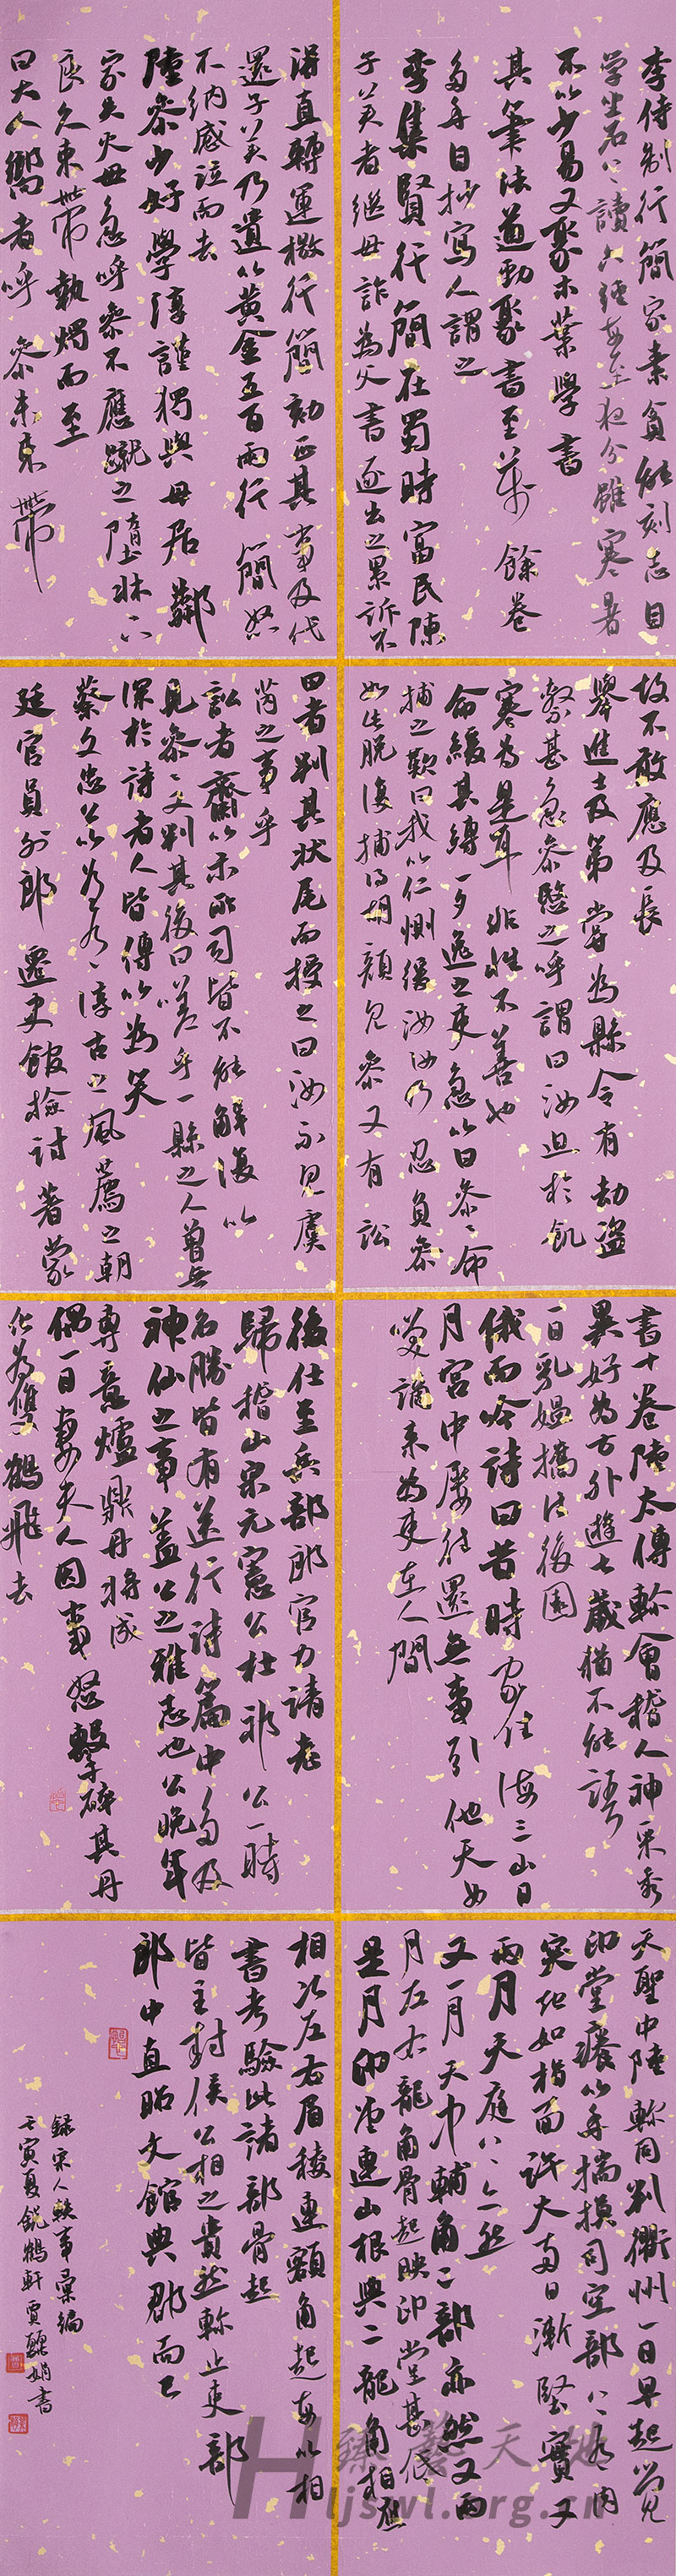 李待制行簡家素貧能刻志自
学坐石上讀六經每至夜分雖寒暑
不以少易又聚木葉學書
其筆法遒勁聚書至萬餘卷
多手自抄寫人謂之
李集賢行簡在蜀時富民陳
子美者繼母詐為父書逐出之累訴不
得直轉運檄行簡劾正其事及代
還子美乃遺以黃金五百兩行簡怒
不納感泣而去
陸參少好學淳謹獨與母居鄰
家失火母急呼參不應蹴之墮牀下
良久束帶執燭而至
曰大人嚮者呼參未束帶
故不敢應及長
舉進士及第嘗為縣令有劫盜
繫甚急參愍之呼謂曰汝迫於飢
寒為是耳非性不善也
命緩其縛一夕逸之吏急以白參參命
捕之歎曰我以仁惻緩汝汝乃忍負參
如此脫復捕得胡顏見參又有訟
田者判其狀尾而授之曰汝不見虞
芮之事乎
訟者齎以示所司皆不能解復以
見參參又判其後曰嗟乎一縣之人曾無
深於詩者人皆傳以為笑
蔡文忠公以為有淳古之風薦之朝
廷官員外郎遷史館檢討著蒙
書十卷陸太傅軫會稽人神采秀
異好為方外遊七歲猶不能語
一日乳媼攜往後園
俄而吟詩曰昔時家住海三山日
月宮中屢往還無事引他天女
笑謫來為吏在人間
後仕至兵部郎官力請老
歸稽山宋元憲公杜祁公一時
名勝皆有送行詩篇中多及
神仙之事蓋公之雅志也公晚年
專意爐鼎丹將成
偶一日妻夫人因事怒擊碎其丹
化為雙鶴飛去
天聖中陸軫同判衢州一日早起覺
印堂癢以手揣摸司空部上有肉
突起如指面許大每日漸堅實又
兩月天庭上亦然
又一月天中輔角二部亦然又兩
月左右龍角骨起映印堂甚低
是月連山根與二龍角相
相次左右眉稜連額角起每以相
書考驗此諸部骨起
皆主封侯公相之貴然軫止吏部
郎中直昭文館典郡而已
錄宋人軼事彙編
壬寅夏銳鶴軒賈娟書
臻藝天地
Hljswl.org.cn